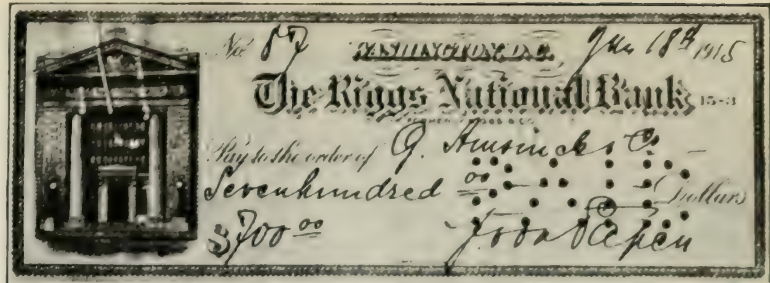 No. 87 WASHINGTON, D.C. Jan 18th 1915
The Riggs National Bank 15-3
Pay to the order of G. Amsinck & Co. —
Sevenhundred 00 Dollars
$700 00 v Papen